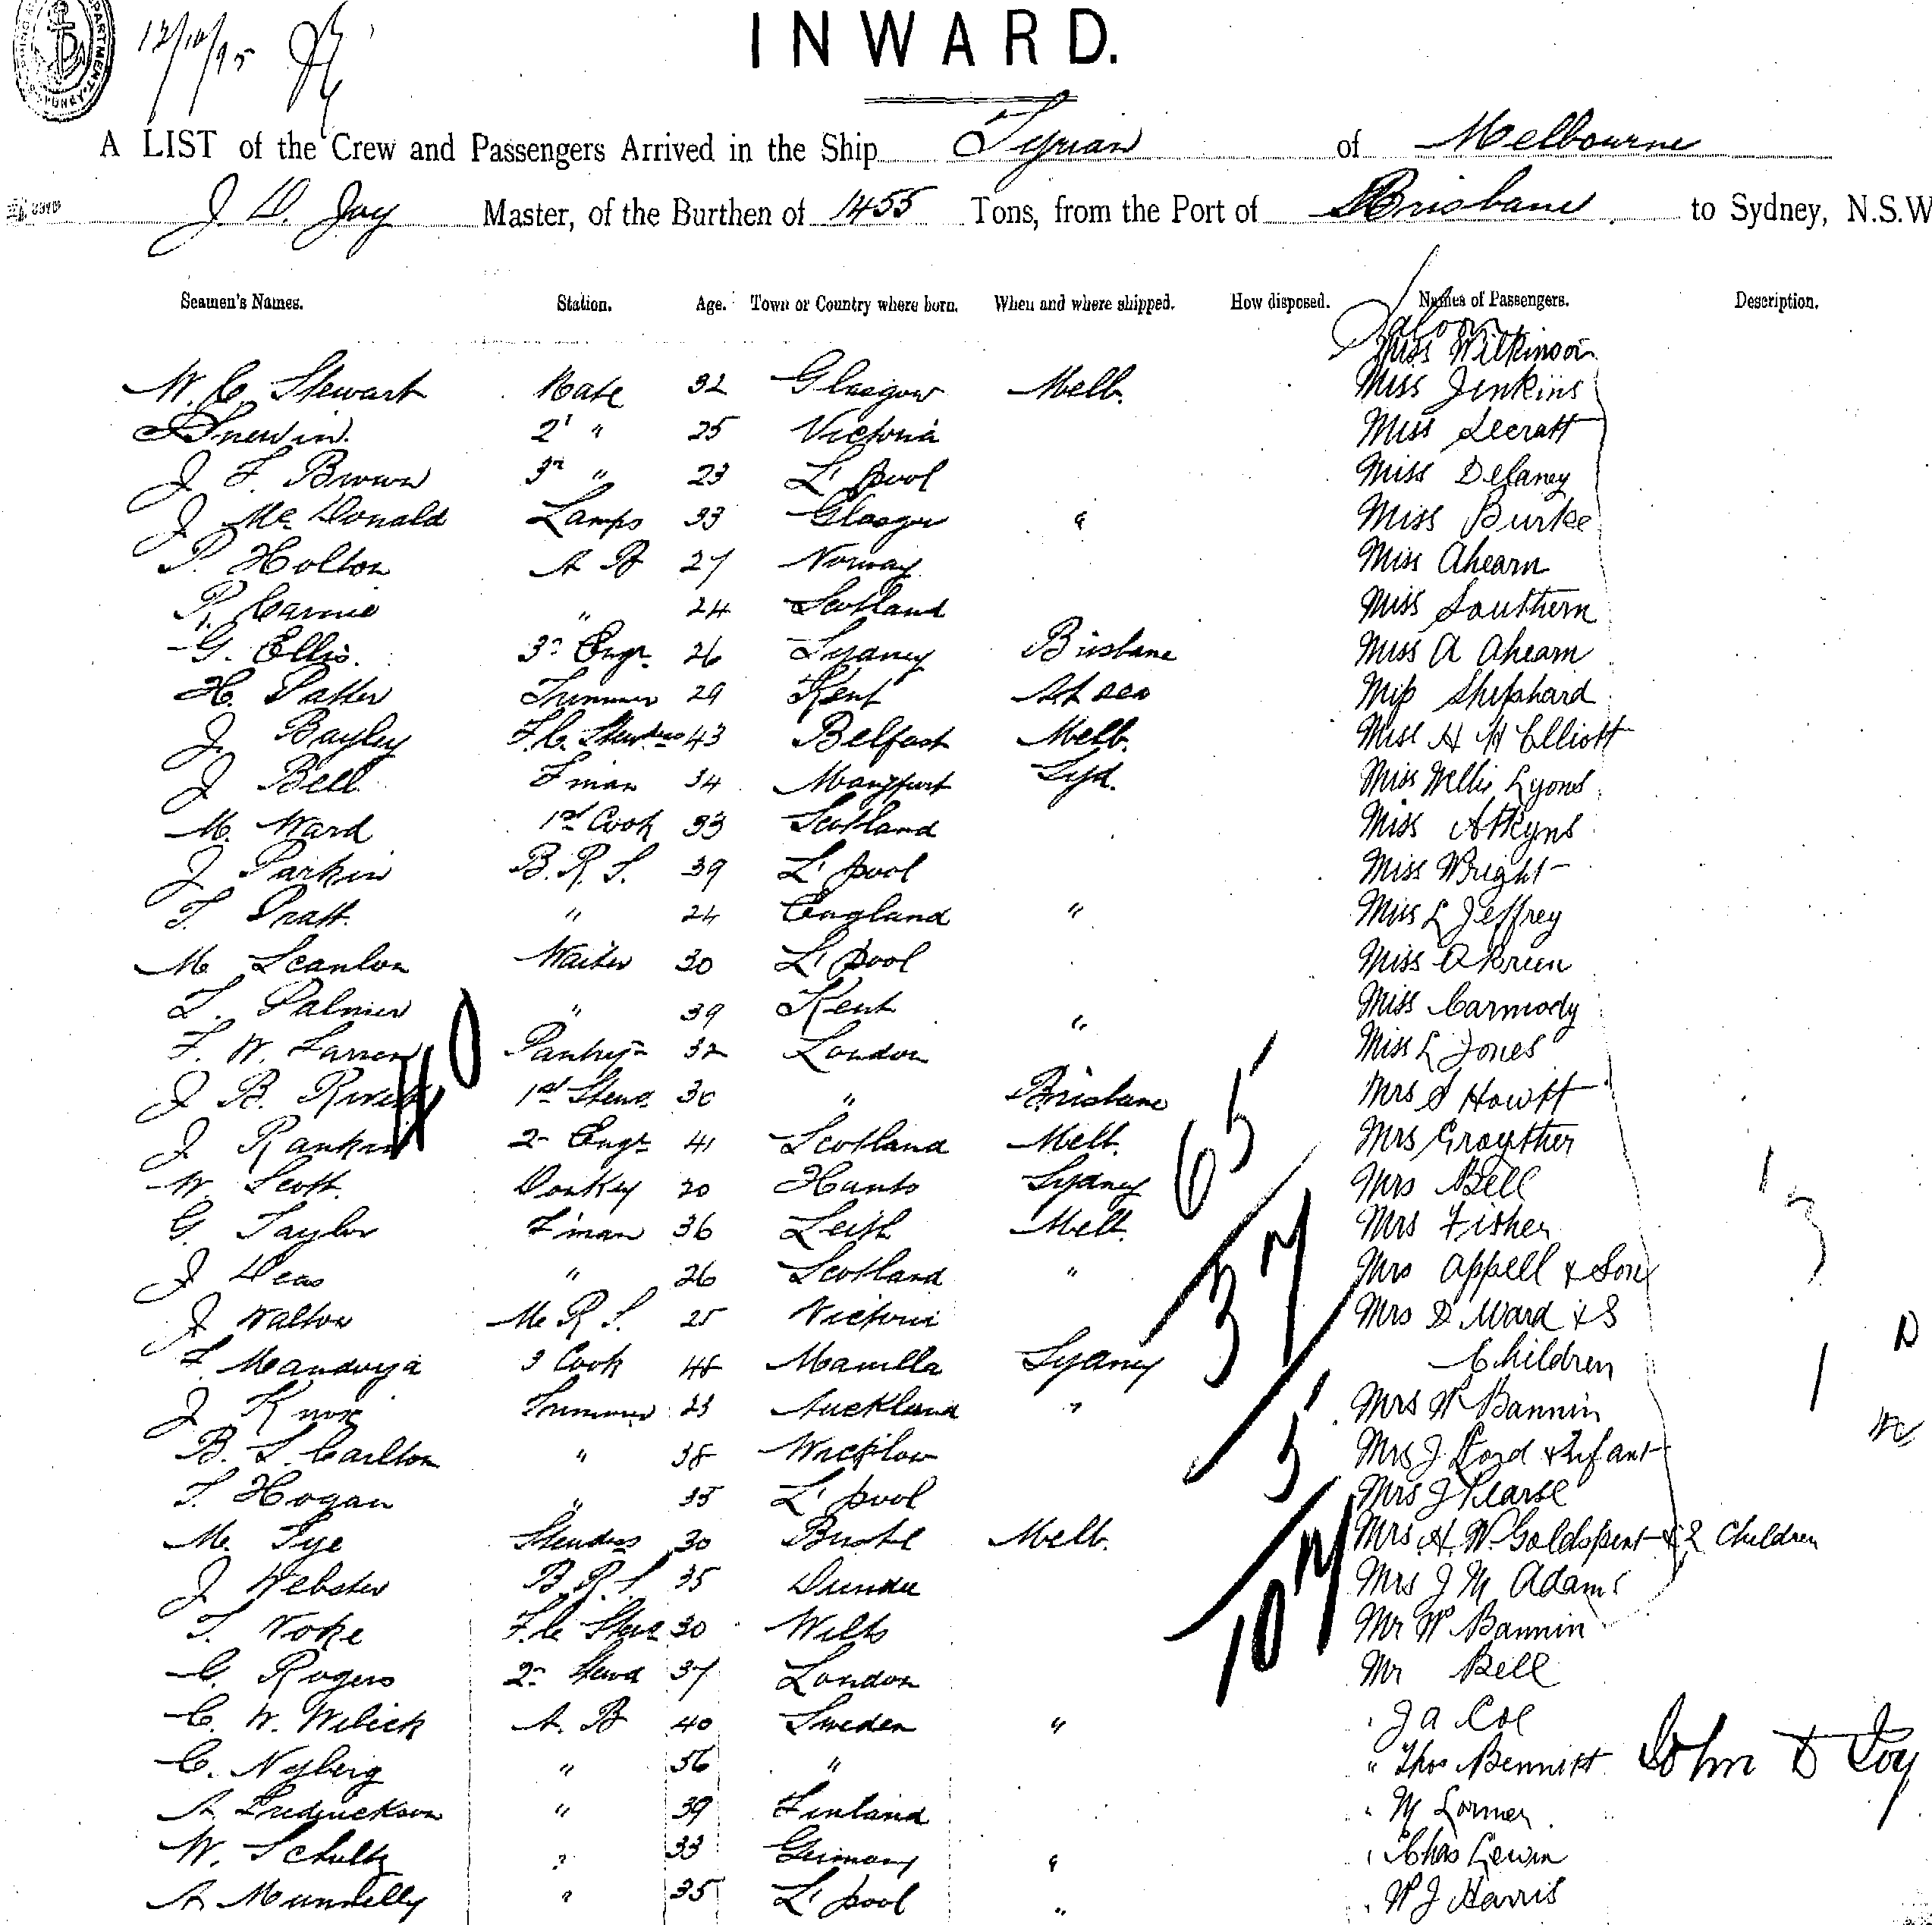 12/10/95
INWARD.
A LIST of the Crew and Passengers Arrived in the Ship Tyrian of Melbourne
J. D. Joy Master, of the Burthen of 1455 Tons, from the Port of Brisbane to Sydney, N.S.W
Seamen's Names. Station. Age. Town or Country where born. When and where shipped. How disposed. Names of Passengers. Description.
Saloon
Miss Wilkinson
W. C. Stewart Mate 32 Glasgow Melb. Miss Jenkins
2d " 25 Victoria Miss
J. F. Brown 3rd " 23 L'pool Miss Delaney
J. McDonald Lamps 33 Glasgow " Miss Burke
P. Holton A B 27 Norway Miss Ahearn
R. Carnie " 24 Scotland Miss Southern
G. Ellis. 3rd Engr 26 Sydney Brisbane Miss A Ahearn
H. Trimmer 29 Kent At sea Miss Shephard
J. Bayley F.C. 43 Belfast Melb. Miss H H Elliott
J Bell F'man 34 Syd. Miss Nellie Lyons
M. Ward 1st Cook 33 Scotland Miss Atkyns
J Parkin B. R. S. 39 L'pool Miss Wright
T. Pratt. " 24 England " Miss L Jeffrey
M Scanlon Waiter 30 L'pool Miss
L. Palmer " 39 Kent " Miss Carmody
F. W. Pantry 32 London Miss L Jones
J B. 1st Stewd 30 " Brisbane Mrs S Howitt
40
65
J Rankin 2n Engr 41 Scotland Melb. Mrs
W. Scott. Donkey 20 Hants Sydney Mrs Bell
G Taylor F'man 36 Leith Melb. Mrs Fisher
J Deas " 26 Scotland " Mrs Appell & Son
37
J Walton M. R. S. 25 Victoria Mrs D Ward & 3
3 Cook 48 Manilla Sydney Children
J Knox Trimmer 23 Auckland " Mrs W Bannin
B. S. Carlton " 38 Wicklow Mrs J Lord & Infant
5
T. Hogan " 35 L'pool Mrs J Pearse
M. Pye 30 Melb. Mrs H. W. & 2 Children
J Webster B R S 35 Dundee Mrs J M Adams
T. Noke F.C. Stewd 30 Wilts Mr W Bannin
107
C. Rogers 2n Stewd 37 London Mr Bell
C. W. A. B 40 Sweden " " J A Coe
C. Nyberg " 56 " " Thos Bennett John D Joy
A. Fredrickson " 39 Finland " M
W. Schultz " 33 Germany " " Chas Lewin
A Munnelly " 35 L'pool " " W J Harris